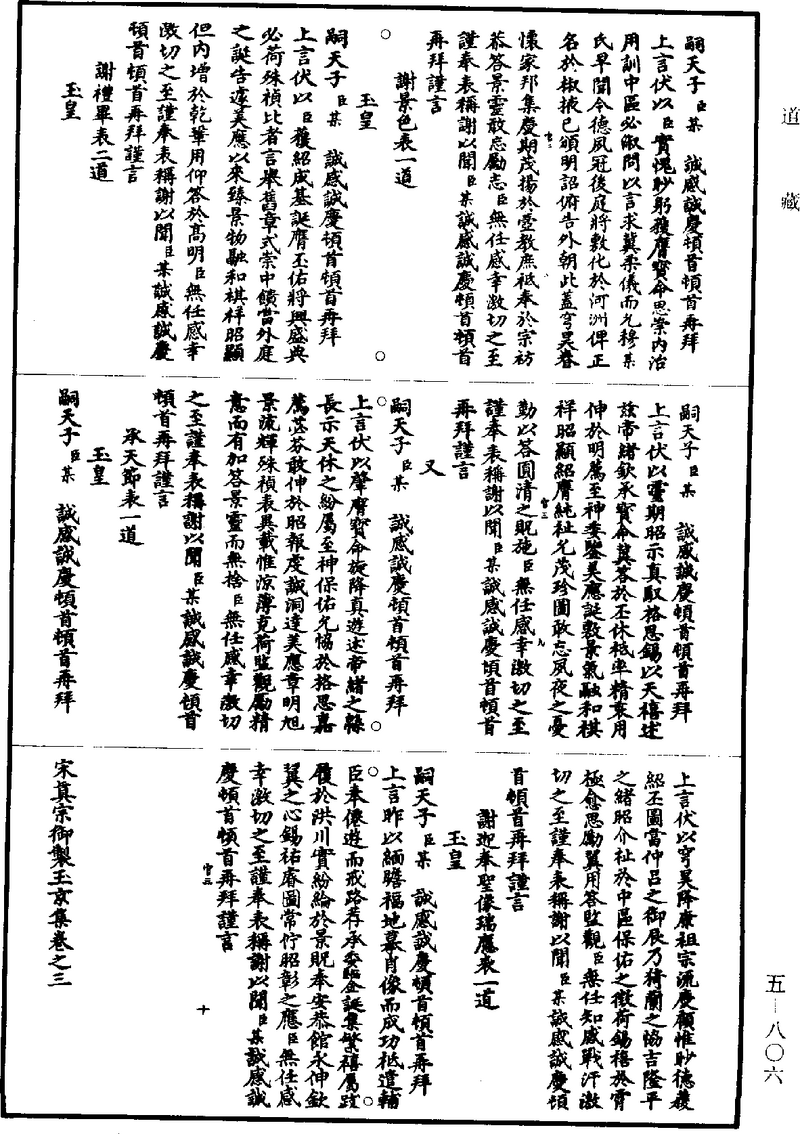 道藏
嗣天子臣某　誠感誠慶頓首頓首再拜
上言伏以臣實愧眇躬獲膺寶命思崇內治
用訓中區必俶問以言求冀柔儀而允穆某
氏早聞令德夙冠後庭將敷化於河洲俾正
名於椒掖已頒明詔俯告外朝此蓋穹昊眷
懷家邦集慶期茂揚於壼教庶祗奉於宗祊
恭答景靈敢忘勵志臣無任感幸激切之至
謹奉表稱謝以聞臣某誠感誠慶頓首頓首
再拜謹言
謝景色表一道
玉皇
嗣天子臣某　誠感誠慶頓首頓首再拜
上言伏以臣獲紹成基誕膺丕佑將興盛典
必荷殊禎比者言舉舊章式崇中饋當外庭
之誕告遽美應以來臻景物融和祺祥昭顯
但內增於乾鞏用仰答於高明臣無任感幸
激切之至謹奉表稱謝以聞臣某誠感誠慶
頓首頓首再拜謹言
謝禮畢表二道
玉皇
嗣天子臣某　誠感誠慶頓首頓首再拜
上言伏以靈期昭示真馭格思錫以天禧述
茲帝緒欽承寶命冀答於丕休祗率精衷用
伸於明薦至神委鑒美應誕敷景氣融和祺
祥昭顯紹膺純祉允茂珍圖敢忘夙夜之憂
勤以答圓清之貺施臣無任感幸激切之至
謹奉表稱謝以聞臣某誠感誠慶頓首頓首
再拜謹言
又
嗣天子臣某　誠感誠慶頓首頓首再拜
上言伏以肇膺寶命旋降真遊述帝緒之緜
長示天休之紛屬至神保佑允協於格思嘉
薦苾芬敢伸於昭報虔誠洞達美應章明旭
景流輝殊禎表異載惟涼薄克荷監觀勵精
意而有加答景靈而無捨臣無任感幸激切
之至謹奉表稱謝以聞臣某誠感誠慶頓首
頓首再拜謹言
承天節表一道
玉皇
嗣天子臣某　誠感誠慶頓首頓首再拜
上言伏以穹昊降康祖宗流慶顧惟眇德獲
紹丕圖當仲呂之御辰乃猗蘭之協吉隆平
之緒昭介祉於中區保佑之徵荷錫禧於霄
極愈思勵翼用答監觀臣無任知感戰汗激
切之至謹奉表稱謝以聞臣某誠感誠慶頓
首頓首再拜謹言
謝迎奉聖像瑞應表一道
玉皇
嗣天子臣某　誠感誠慶頓首頓首再拜
上言昨以緬瞻福地摹肖像而成功祗遣輔
臣奉僊遊而戒路荐承委鑒誕集繁禧屬跂
履於洪川實紛綸於景貺奉安恭館永伸欽
翼之心錫祐睿圖常佇昭彰之應臣無任感
幸激切之至謹奉表稱謝以聞臣某誠感誠
慶頓首頓首再拜謹言
宋真宗御製玉京集卷之三
五—八〇六